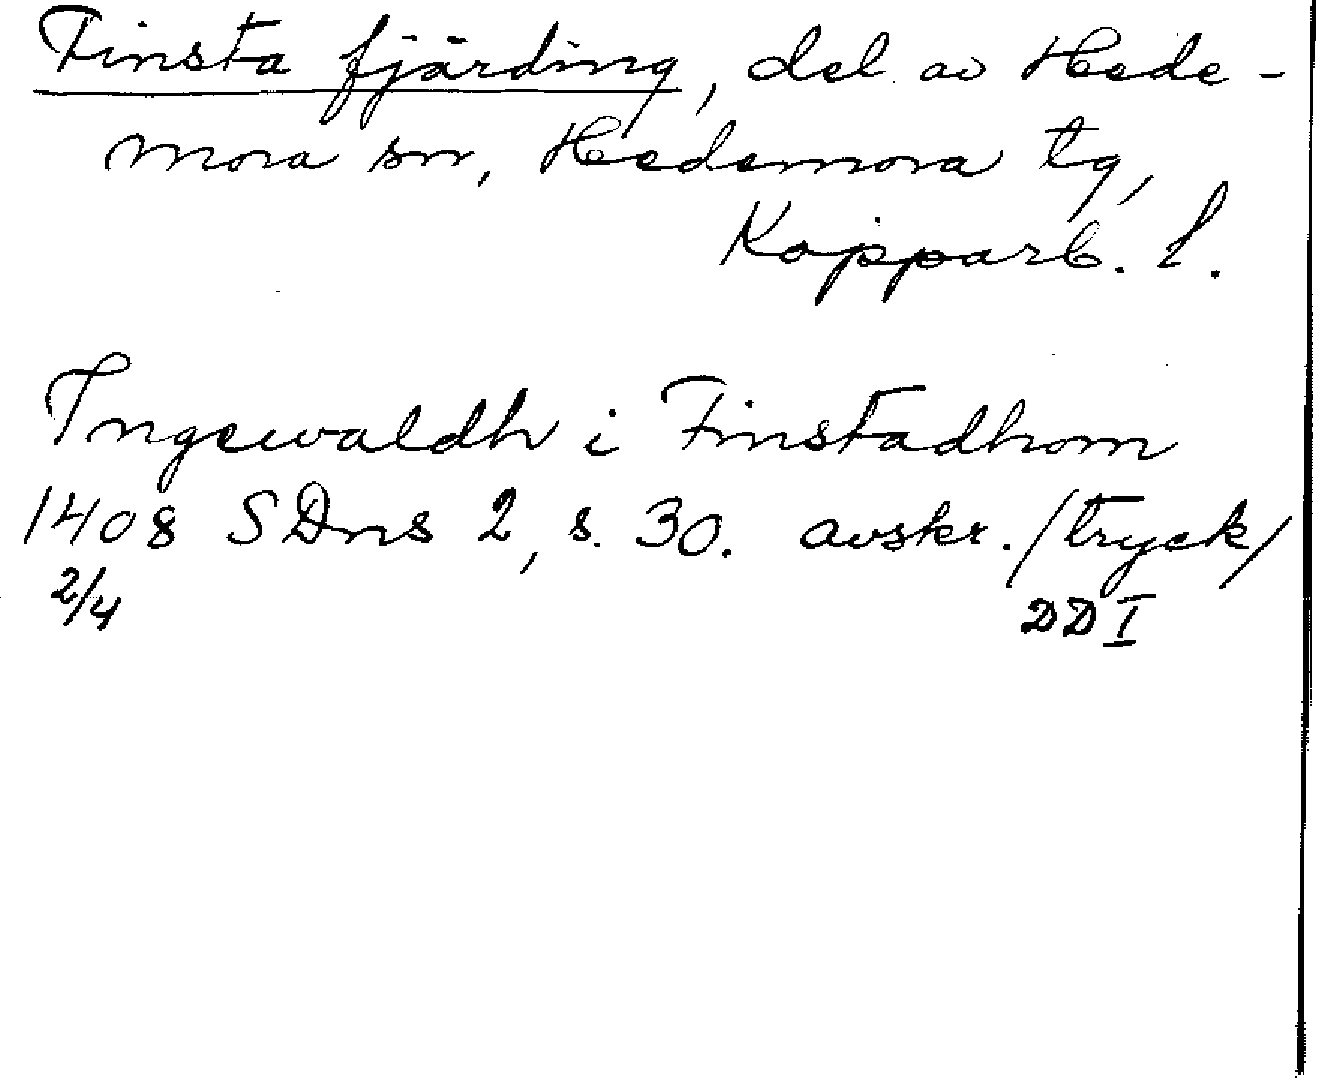 Finsta fjärding, del av Hede-
mora sn, Hedemora tg,
Kopparb. l.
Ingewaldh i Finstadhom
1408 SDns 2, s. 30. avskr. /tryck/
2/4 DD I